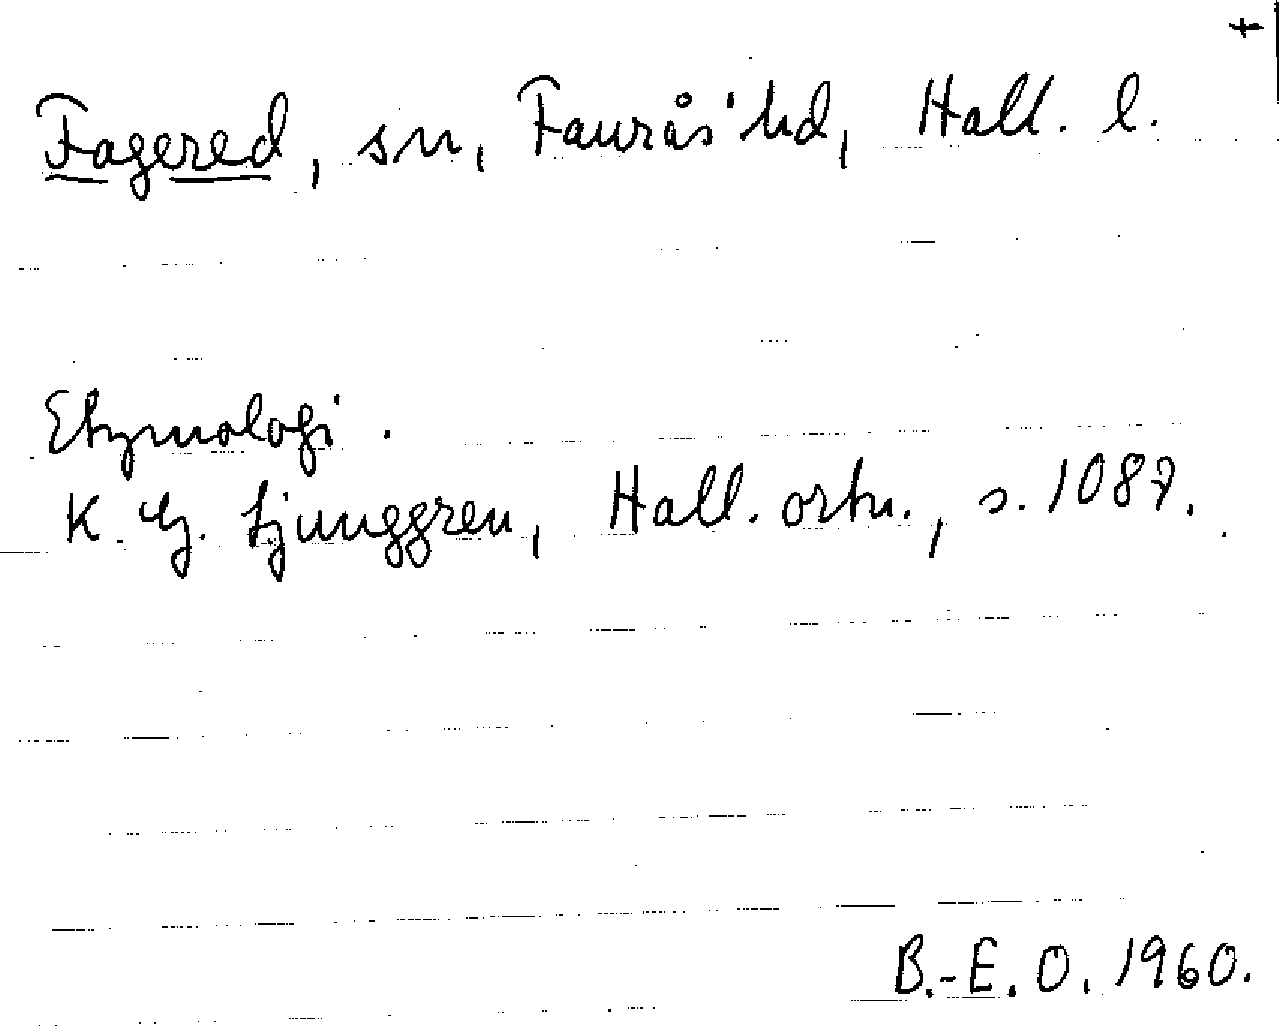 +
Fagered, sn, Faurås hd, Hall. l.
Etymologi.
K. G. Ljunggren, Hall. ortn., s. 1087.
B.-E. O. 1960.